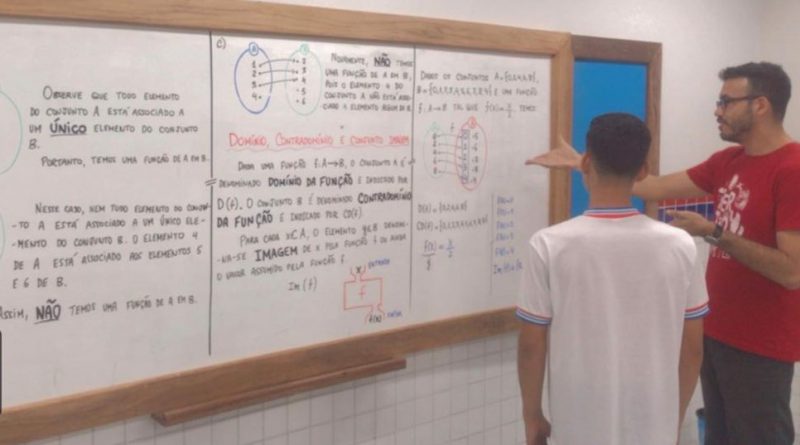 OBSERVE QUE TODO ELEMENTO
DO CONJUNTO A ESTÁ ASSOCIADO A
UM ÚNICO ELEMENTO DO CONJUNTO
B.
PORTANTO, TEMOS UMA FUNÇÃO DE A EM B.
NESSE CASO, NEM TODO ELEMENTO DO CONJUN-
-TO A ESTÁ ASSOCIADO A UM ÚNICO ELE-
-MENTO DO CONJUNTO B. O ELEMENTO 4
DE A ESTÁ ASSOCIADO AOS ELEMENTOS 5
E 6 DE B.
ASSIM, NÃO TEMOS UMA FUNÇÃO DE A EM B.
C)
A B
1
2
3
4
NOVAMENTE, NÃO TEMOS
UMA FUNÇÃO DE A EM B,
POIS O ELEMENTO 4 DO
CONJUNTO A NÃO ESTÁ ASSO-
CIADO A ELEMENTO ALGUM DE B.
DOMÍNIO, CONTRADOMÍNIO E CONJUNTO IMAGEM
DADA UMA FUNÇÃO f: A→B, O CONJUNTO A É
DENOMINADO DOMÍNIO DA FUNÇÃO E INDICADO POR
D(f). O CONJUNTO B É DENOMINADO CONTRADOMÍNIO
DA FUNÇÃO E INDICADO POR CD(f).
PARA CADA x∈A, O ELEMENTO y∈B DENOMI-
-NA-SE IMAGEM DE x PELA FUNÇÃO f OU AINDA
O VALOR ASSUMIDO PELA FUNÇÃO f.
Im (f)
x ENTRADA
f
f(x) SAÍDA
DADOS OS CONJUNTOS A={0,2,4,6,8},
E UMA FUNÇÃO
f: A→B TAL QUE f(x)=x/2, TEMOS
f
D(f)={0,2,4,6,8}
CD(f)=
f(x)=x/2